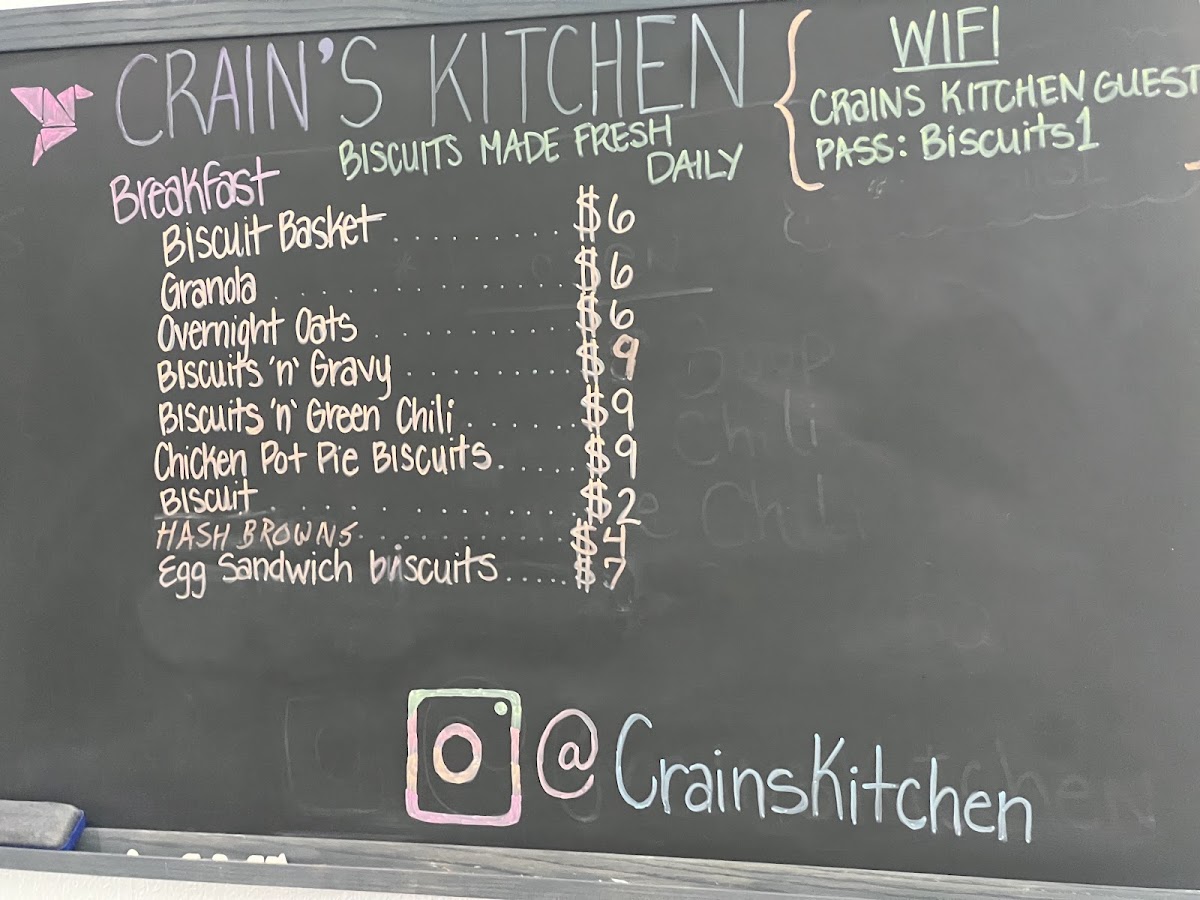 CRAIN'S KITCHEN
BISCUITS MADE FRESH
DAILY
WIFI
CRAINS KITCHEN GUEST
PASS: Biscuits1
Breakfast
Biscuit Basket ........... $6
Granola ................ $6
Overnight Oats ........... $6
Biscuits 'n' Gravy .......... $9
Biscuits 'n' Green Chili ....... $9
Chicken Pot Pie Biscuits ...... $9
Biscuit ................ $2
HASH BROWNS ............ $4
Egg Sandwich biscuits ..... $7
@CrainsKitchen